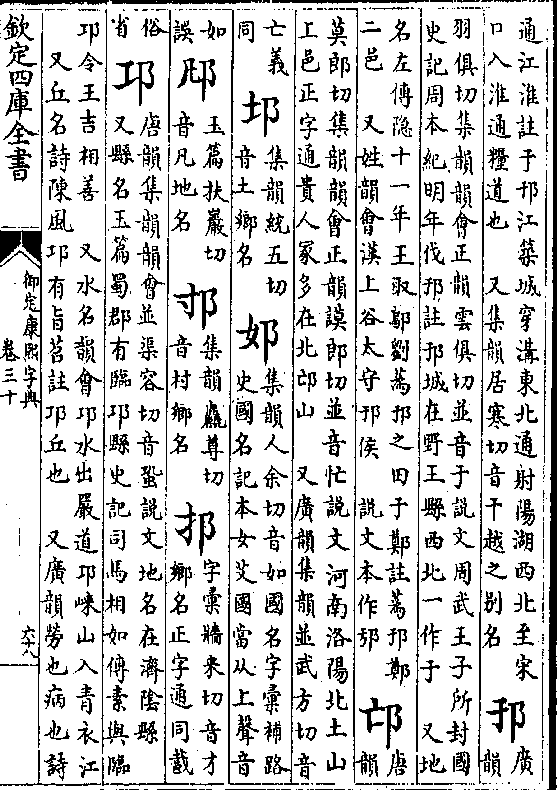 通江淮註于邗江築城穿溝東北通射陽湖西北至宋
口入淮通糧道也　又集韻居寒切音干越之別名　邘　廣
韻
羽俱切集韻韻會正韻雲俱切並音于說文周武王子所封國
史記周本紀明年伐邘註邘城在野王縣西北一作于　又地
名左傳隐十一年王取鄔劉蒍邘之田于鄭註蒍邘鄭
二邑　又姓韻會漢上谷太守邘侯　說文本作𨙻　邙　唐
韻
莫郎切集韻韻會正韻謨郎切並音忙說文河南洛陽北土山
上邑正字通貴人冢多在北邙山　又廣韻集韻並武方切音
亡義
同　𨙸　集韻統五切
音土鄉名　𨚴　集韻人余切音如國名字彙補路
史國名記本女艾國當从上聲音
如
誤　𨙓　玉篇扶嚴切
音凡地名　邨　集韻麤尊切
音村鄉名　𨙴　字彙牆來切音才
鄉名正字通同䣬
俗
省　邛　唐韻集韻韻會並渠容切音蛩說文地名在濟陰縣
又縣名玉篇蜀郡有臨邛縣史記司馬相如傳素與臨
邛令王吉相善　又水名韻會邛水出嚴道邛崍山入青衣江
又丘名詩陳風邛有旨苕註邛丘也　又廣韻勞也病也詩
欽定四庫全書
御定康熙字典
卷三十
六十八